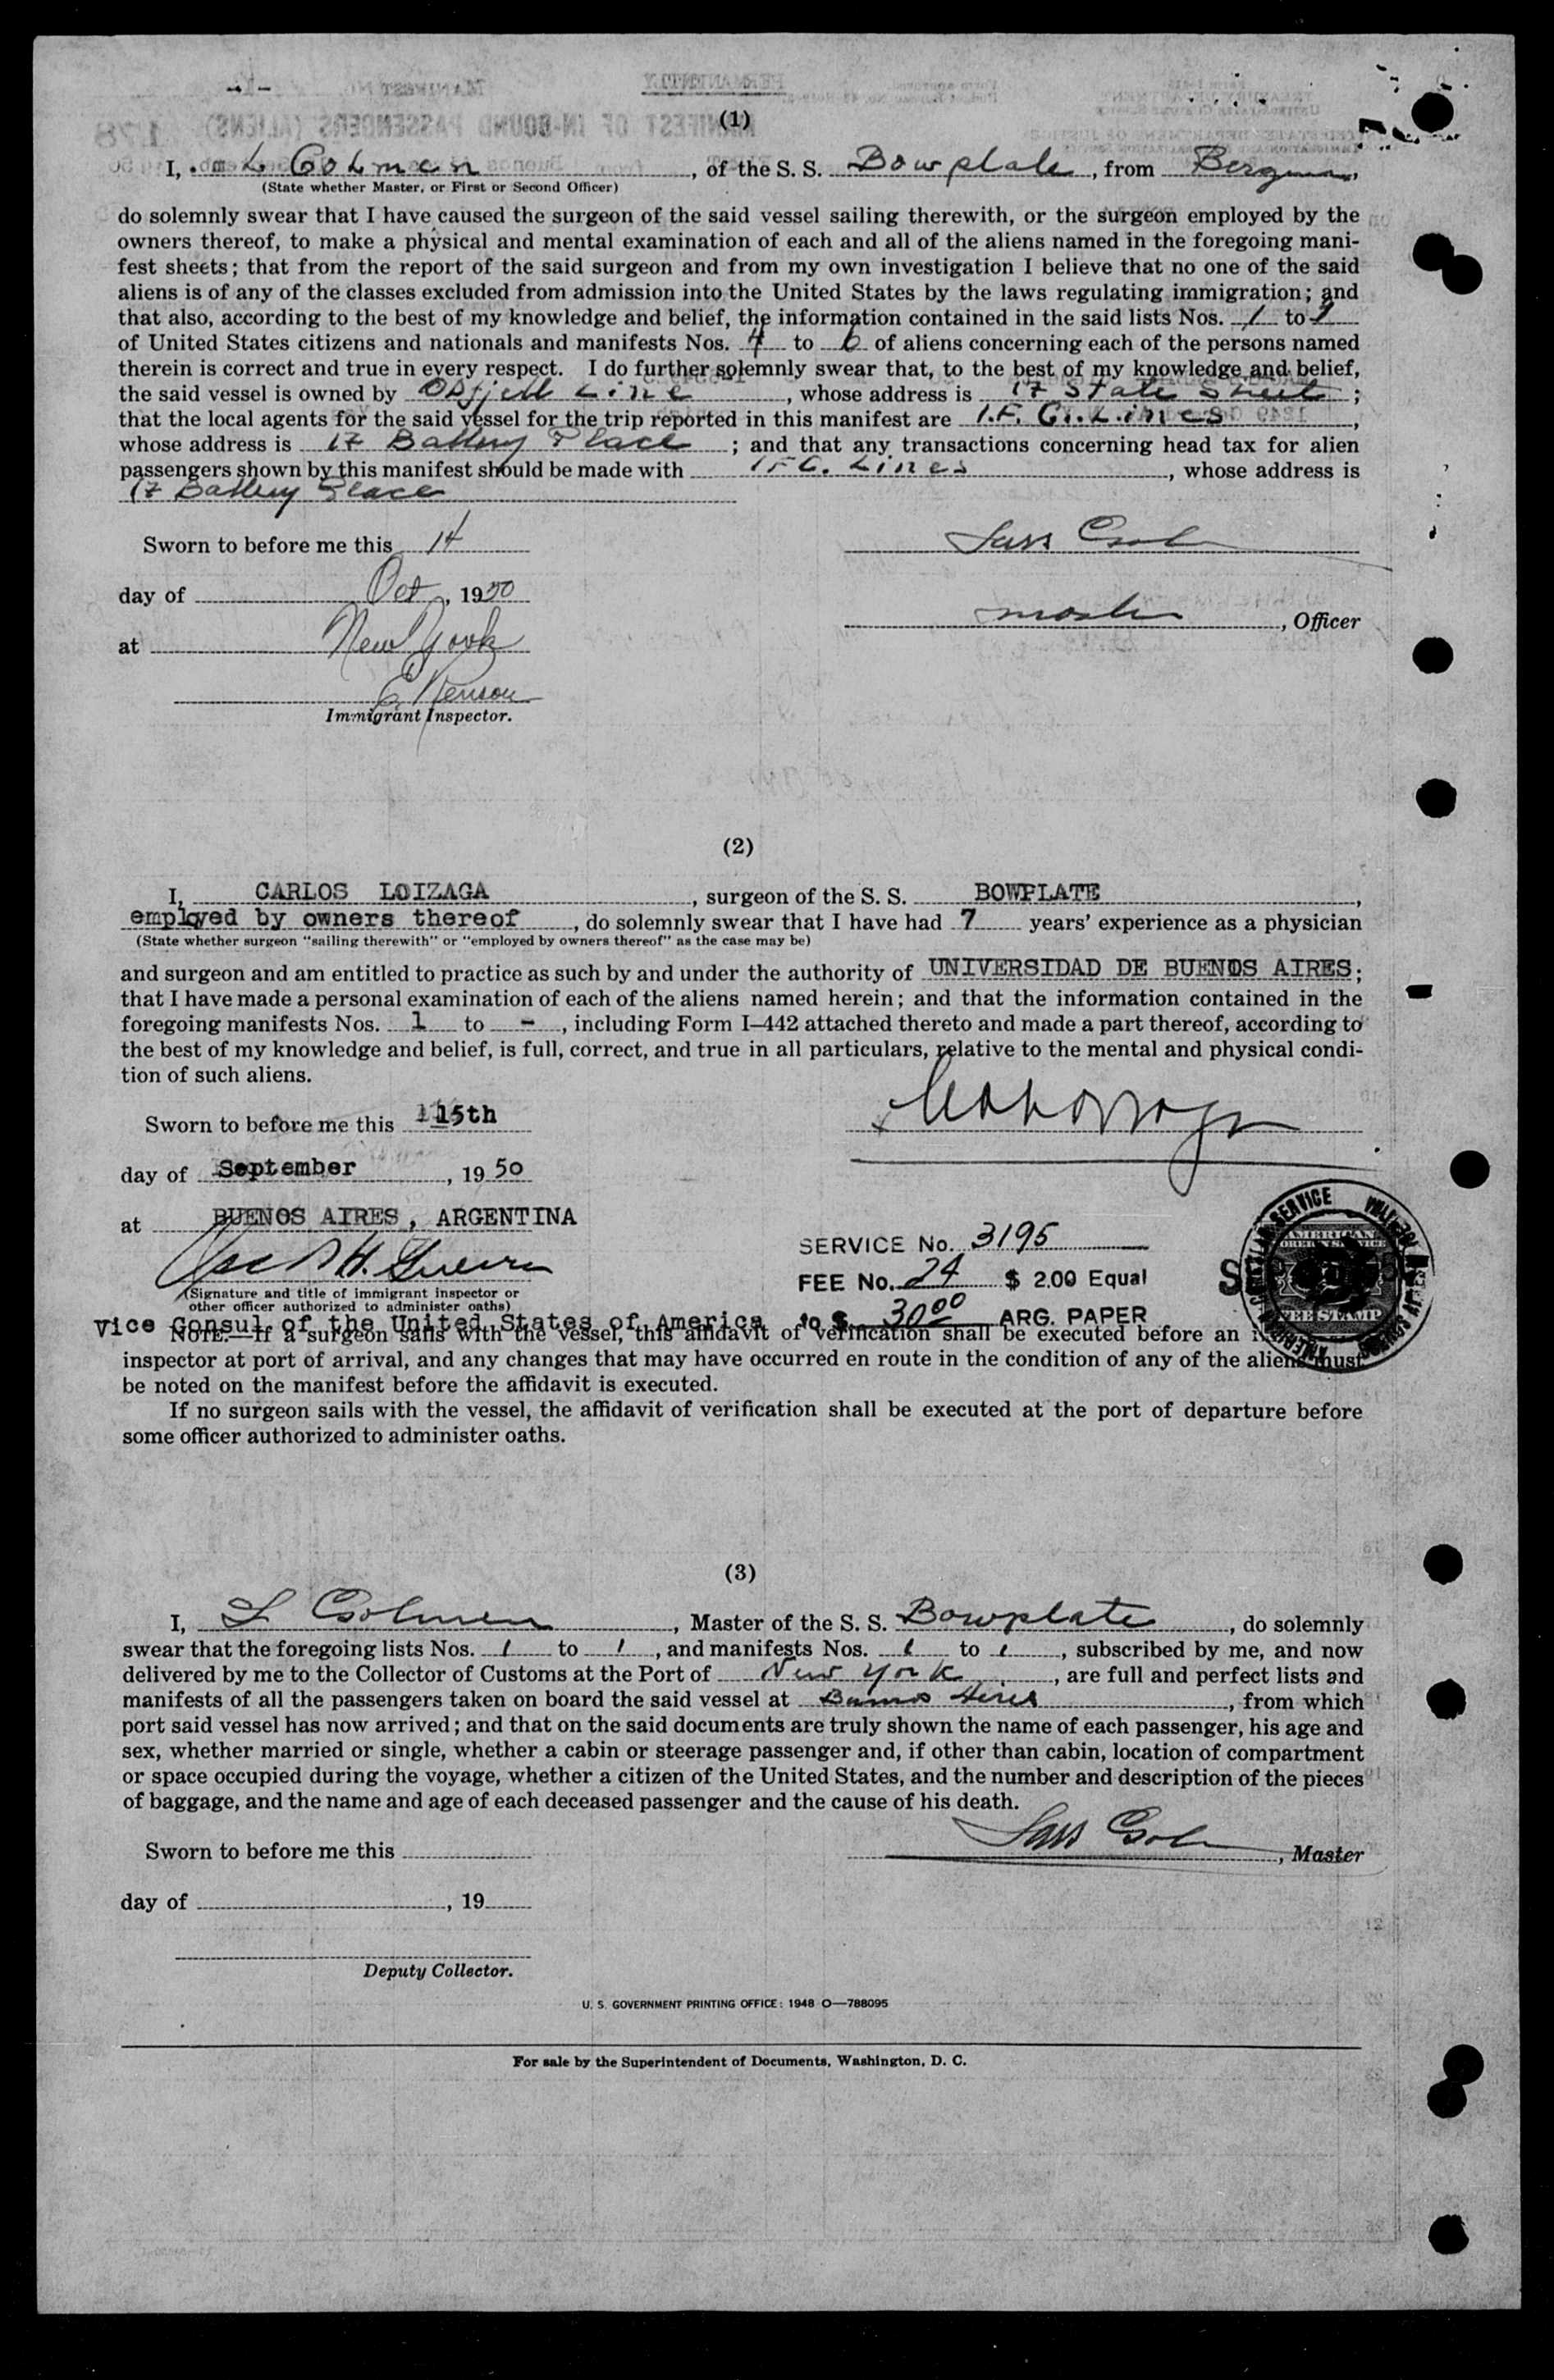 (1)
I, L Colmen, of the S. S. Bowplate, from Bergen,
(State whether Master, or First or Second Officer)
do solemnly swear that I have caused the surgeon of the said vessel sailing therewith, or the surgeon employed by the
owners thereof, to make a physical and mental examination of each and all of the aliens named in the foregoing mani-
fest sheets; that from the report of the said surgeon and from my own investigation I believe that no one of the said
aliens is of any of the classes excluded from admission into the United States by the laws regulating immigration; and
that also, according to the best of my knowledge and belief, the information contained in the said lists Nos. 1 to
of United States citizens and nationals and manifests Nos. 4 to 6 of aliens concerning each of the persons named
therein is correct and true in every respect. I do further solemnly swear that, to the best of my knowledge and belief,
the said vessel is owned by Line, whose address is 17 State Street;
that the local agents for the said vessel for the trip reported in this manifest are I.F.C. Lines,
whose address is 17 Battery Place; and that any transactions concerning head tax for alien
passengers shown by this manifest should be made with IFC. Lines, whose address is
17 Battery Place
Sworn to before me this 14
day of Oct, 1950
master, Officer
at New York
Immigrant Inspector.
(2)
I, CARLOS LOIZAGA, surgeon of the S. S. BOWPLATE,
employed by owners thereof, do solemnly swear that I have had 7 years' experience as a physician
(State whether surgeon "sailing therewith" or "employed by owners thereof" as the case may be)
and surgeon and am entitled to practice as such by and under the authority of UNIVERSIDAD DE BUENOS AIRES;
that I have made a personal examination of each of the aliens named herein; and that the information contained in the
foregoing manifests Nos. 1 to -, including Form I-442 attached thereto and made a part thereof, according to
the best of my knowledge and belief, is full, correct, and true in all particulars, relative to the mental and physical condi-
tion of such aliens.
Sworn to before me this 15th
day of September, 1950
at BUENOS AIRES, ARGENTINA
SERVICE No. 3195
FEE No. 24 $ 2.00 Equal
(Signature and title of immigrant inspector or
other officer authorized to administer oaths)
to $ 30.00 ARG. PAPER
Vice Consul of the United States of America
NOTE.—If a surgeon sails with the vessel, this affidavit of verification shall be executed before an
inspector at port of arrival, and any changes that may have occurred en route in the condition of any of the aliens must
be noted on the manifest before the affidavit is executed.
If no surgeon sails with the vessel, the affidavit of verification shall be executed at the port of departure before
some officer authorized to administer oaths.
(3)
I, L Colmen, Master of the S. S. Bowplate, do solemnly
swear that the foregoing lists Nos. 1 to 1, and manifests Nos. 1 to 1, subscribed by me, and now
delivered by me to the Collector of Customs at the Port of New York, are full and perfect lists and
manifests of all the passengers taken on board the said vessel at Buenos Aires, from which
port said vessel has now arrived; and that on the said documents are truly shown the name of each passenger, his age and
sex, whether married or single, whether a cabin or steerage passenger and, if other than cabin, location of compartment
or space occupied during the voyage, whether a citizen of the United States, and the number and description of the pieces
of baggage, and the name and age of each deceased passenger and the cause of his death.
Sworn to before me this
, Master
day of , 19
Deputy Collector.
U. S. GOVERNMENT PRINTING OFFICE: 1948 O—788095
For sale by the Superintendent of Documents, Washington, D. C.